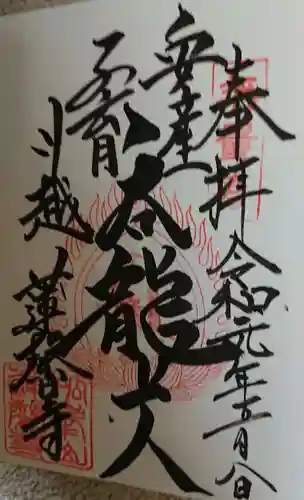 奉拝 令和元年五月八日
安産
呑龍上人
子育
川越 蓮馨寺